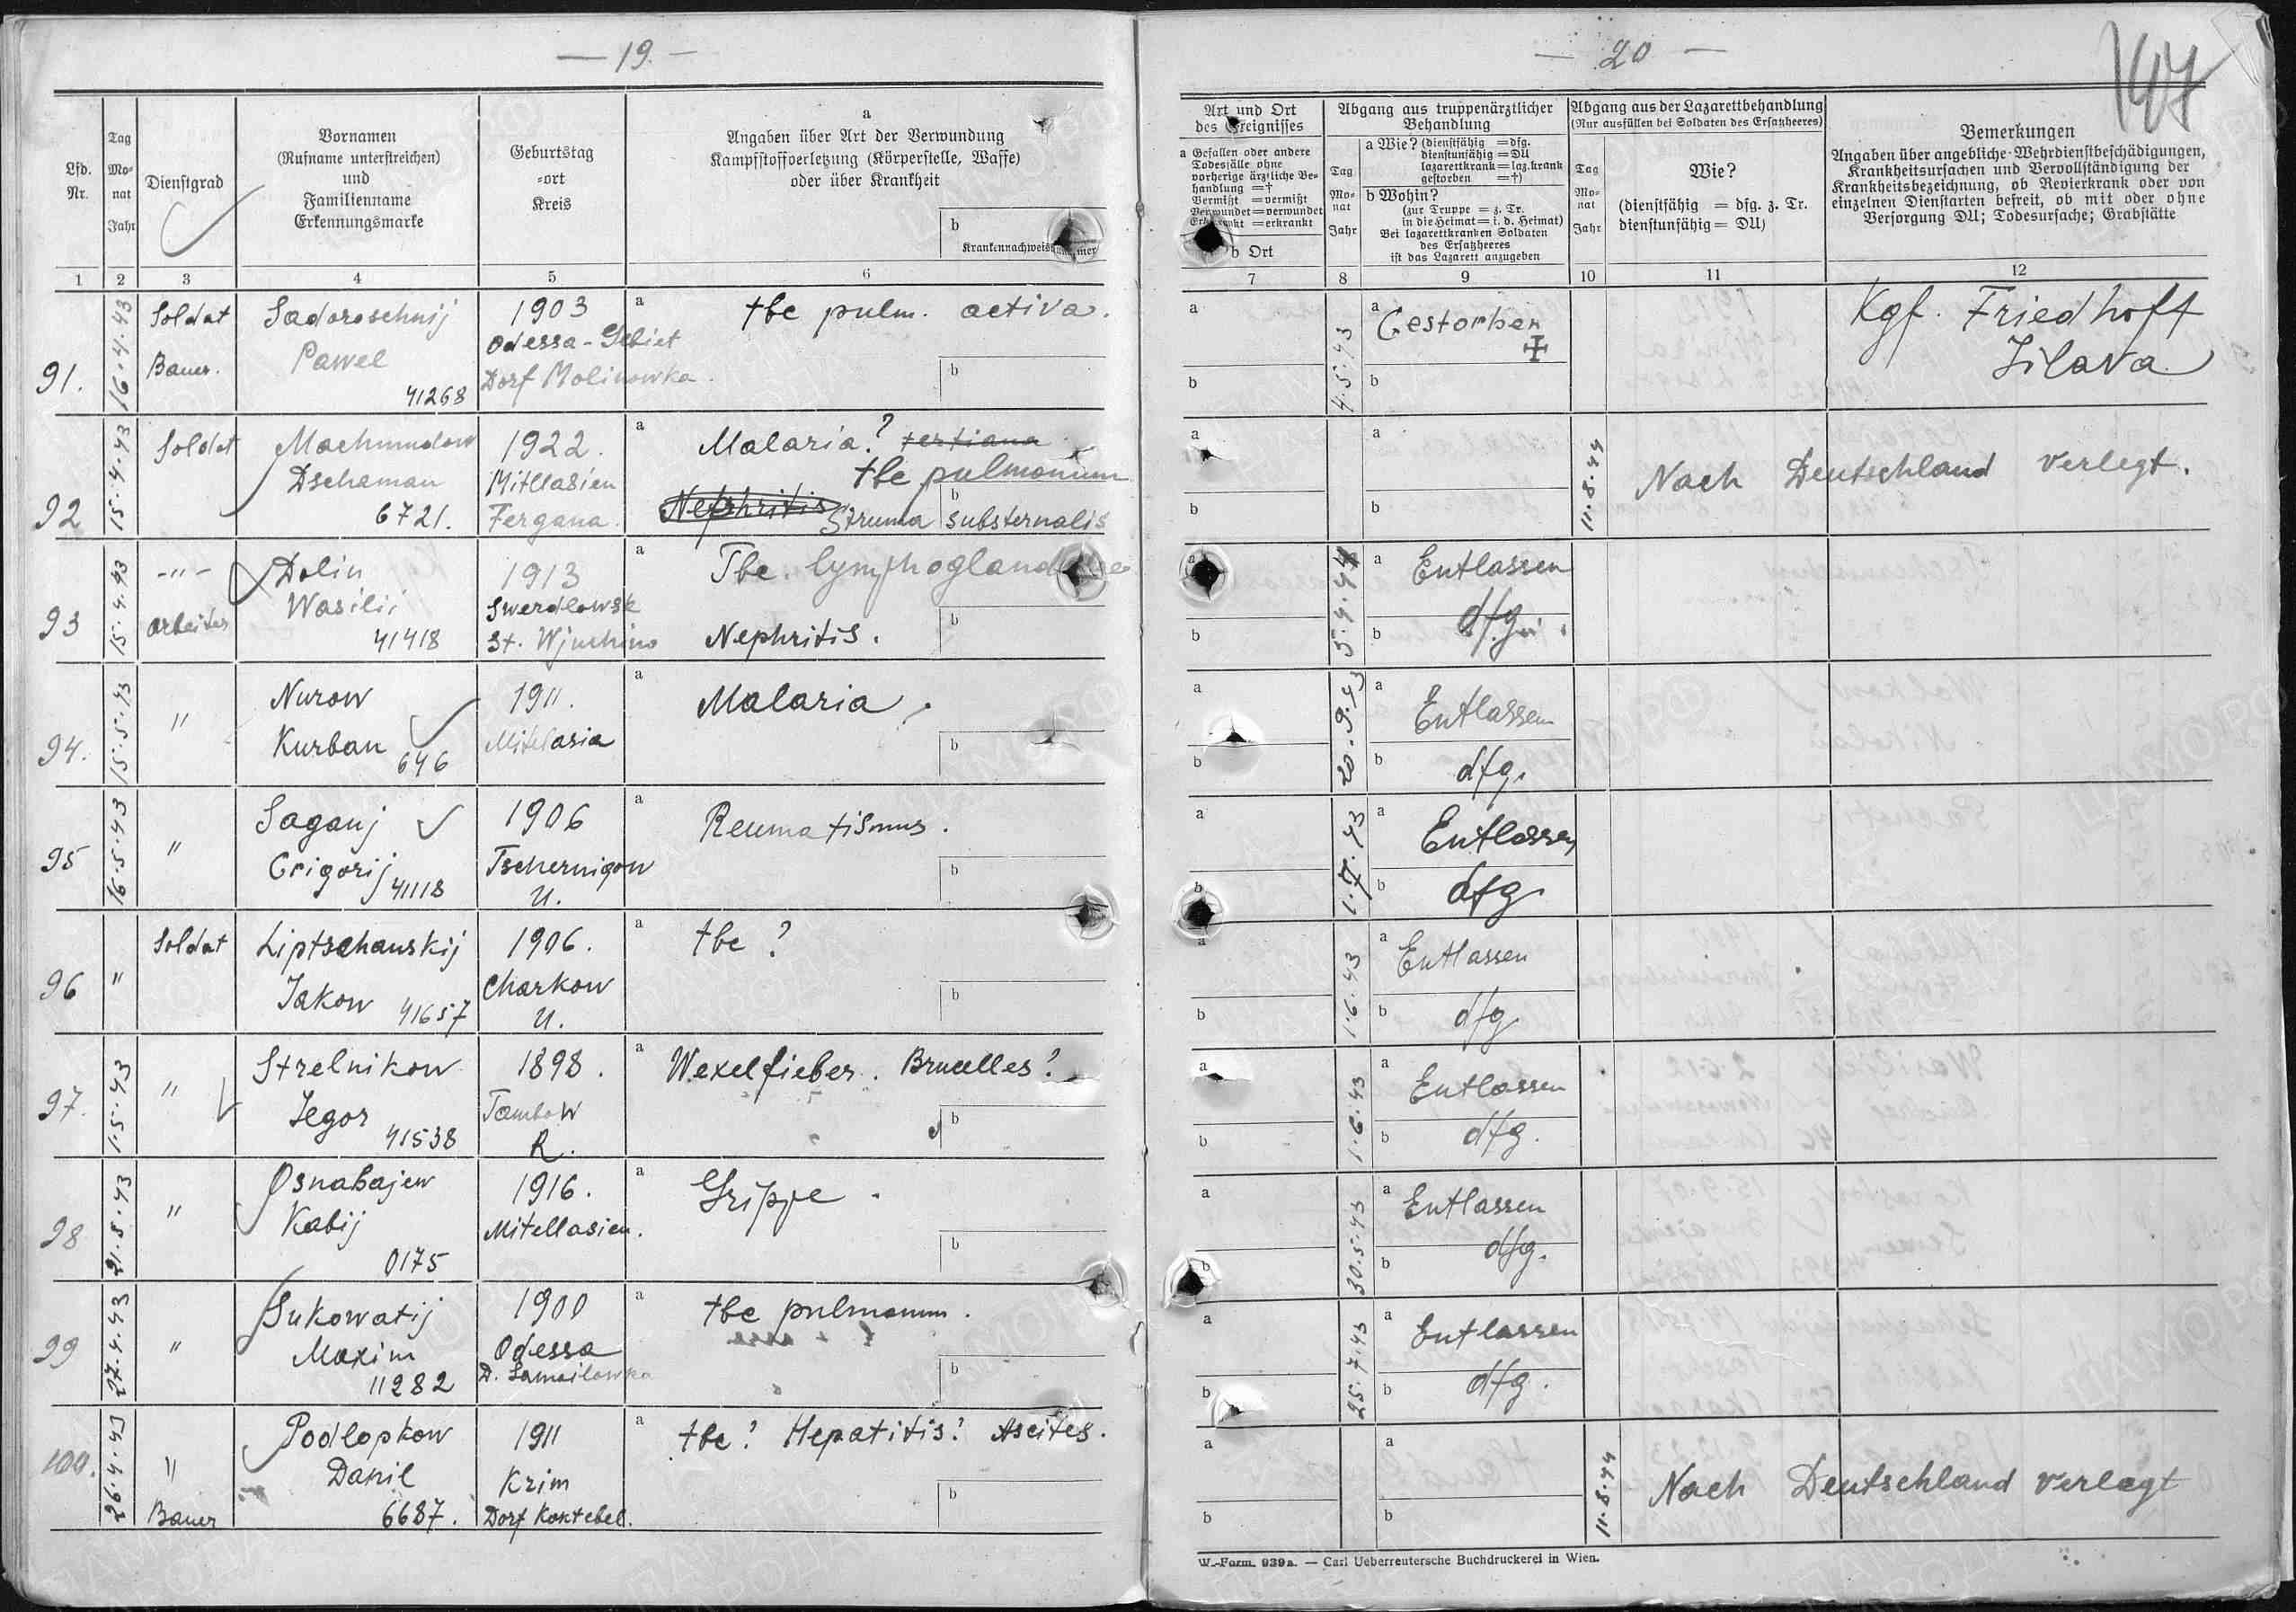 — 19. —
Lfd.
Nr.
Tag
Mo-
nat
Jahr
Dienstgrad
Vornamen
(Rufname unterstreichen)
und
Familienname
Erkennungsmarke
Geburtstag
-ort
Kreis
a
Angaben über Art der Verwundung
Kampfstoffverletzung (Körperstelle, Waffe)
oder über Krankheit
b
1 2 3 4 5 6
91.
16.4.43
Soldat
Bauer.
Sadoroschnij
Pawel
41268
1903
Odessa-Gebiet
Dorf Molinowka.
a
tbc pulm. activa.
b
92
15.4.43
Soldat
Machmudow
Dschaman
6721.
1922.
Mittlasien
Fergana.
a
Malaria? tertiana
tbc pulmonum
b
Nephritis Struma substernalis
93
15.4.43
-"-
Arbeiter
Dolin
Wasilii
41418
1913
Swerdlowsk
St.
a
Tbc.
b
Nephritis.
94.
15.5.43
"
Nurow
Kurban
646
1911.
Mitelasia
a
Malaria.
b
95
16.5.43
"
Saganj
Grigorij
41118
1906
Tschernigow
U.
a
Reumatismus.
b
96
"
Soldat
Liptschanskij
Jakow
41657
1906.
Charkow
U.
a
tbc?
b
97.
1.5.43
"
Strelnikow
Jegor
41538
1898.
Tambow
R.
a
Wexelfieber. Brucelles?
b
98
21.5.43
"
Osnabajew
Kabij
0175
1916.
Mitellasien.
a
Grippe.
b
99
27.4.43
"
Sukowatij
Maxim
11282
1900
Odessa
D. Samoilowka
a
tbc pulmonum.
b
100.
26.4.43
"
Bauer
Podlopkow
Danil
6687.
1911
Krim
Dorf Koktebel.
a
tbc? Hepatitis? Ascites.
b
— 20 —
147
Art und Ort
des Ereignisses
a Gefallen oder andere
Todesfälle ohne
vorherige ärztliche Be-
handlung = †
Vermißt = vermißt
Verwundet = verwundet
Erkrankt = erkrankt
b Ort
Abgang aus truppenärztlicher
Behandlung
Tag
Mo-
nat
Jahr
a Wie? (dienstfähig = dfg.
dienstunfähig = DU
lazarettkrank = laz.krank
gestorben = †)
b Wohin?
(zur Truppe = z. Tr.
in die Heimat = i. d. Heimat)
Bei lazarettkranken Soldaten
des Ersatzheeres
ist das Lazarett anzugeben
Abgang aus der Lazarettbehandlung
(Nur ausfüllen bei Soldaten des Ersatzheeres)
Tag
Mo-
nat
Jahr
Wie?
(dienstfähig = dfg. z. Tr.
dienstunfähig = DU)
Bemerkungen
Angaben über angebliche Wehrdienstbeschädigungen,
Krankheitsursachen und Vervollständigung der
Krankheitsbezeichnung, ob Revierkrank oder von
einzelnen Dienstarten befreit, ob mit oder ohne
Versorgung DU; Todesursache; Grabstätte
7 8 9 10 11 12
a
b
4.5.43
a
Gestorben
✠
b
Kgf. Friedhoff
Jilava
a
b
a
b
11.8.44
Nach Deutschland verlegt.
a
b
5.4.44
a
Entlassen
b
dfg
a
b
20.9.43
a
Entlassen
b
dfg.
a
b
1.7.43
a
Entlassen
b
dfg.
a
b
1.6.43
a
Entlassen
b
dfg
a
b
1.6.43
a
Entlassen
b
dfg.
a
b
30.5.43
a
Entlassen
b
dfg.
a
b
25.7.43
a
Entlassen
b
dfg.
a
b
a
b
11.8.44
Nach Deutschland verlegt
W.-Form. 939a. — Carl Ueberreutersche Buchdruckerei in Wien.